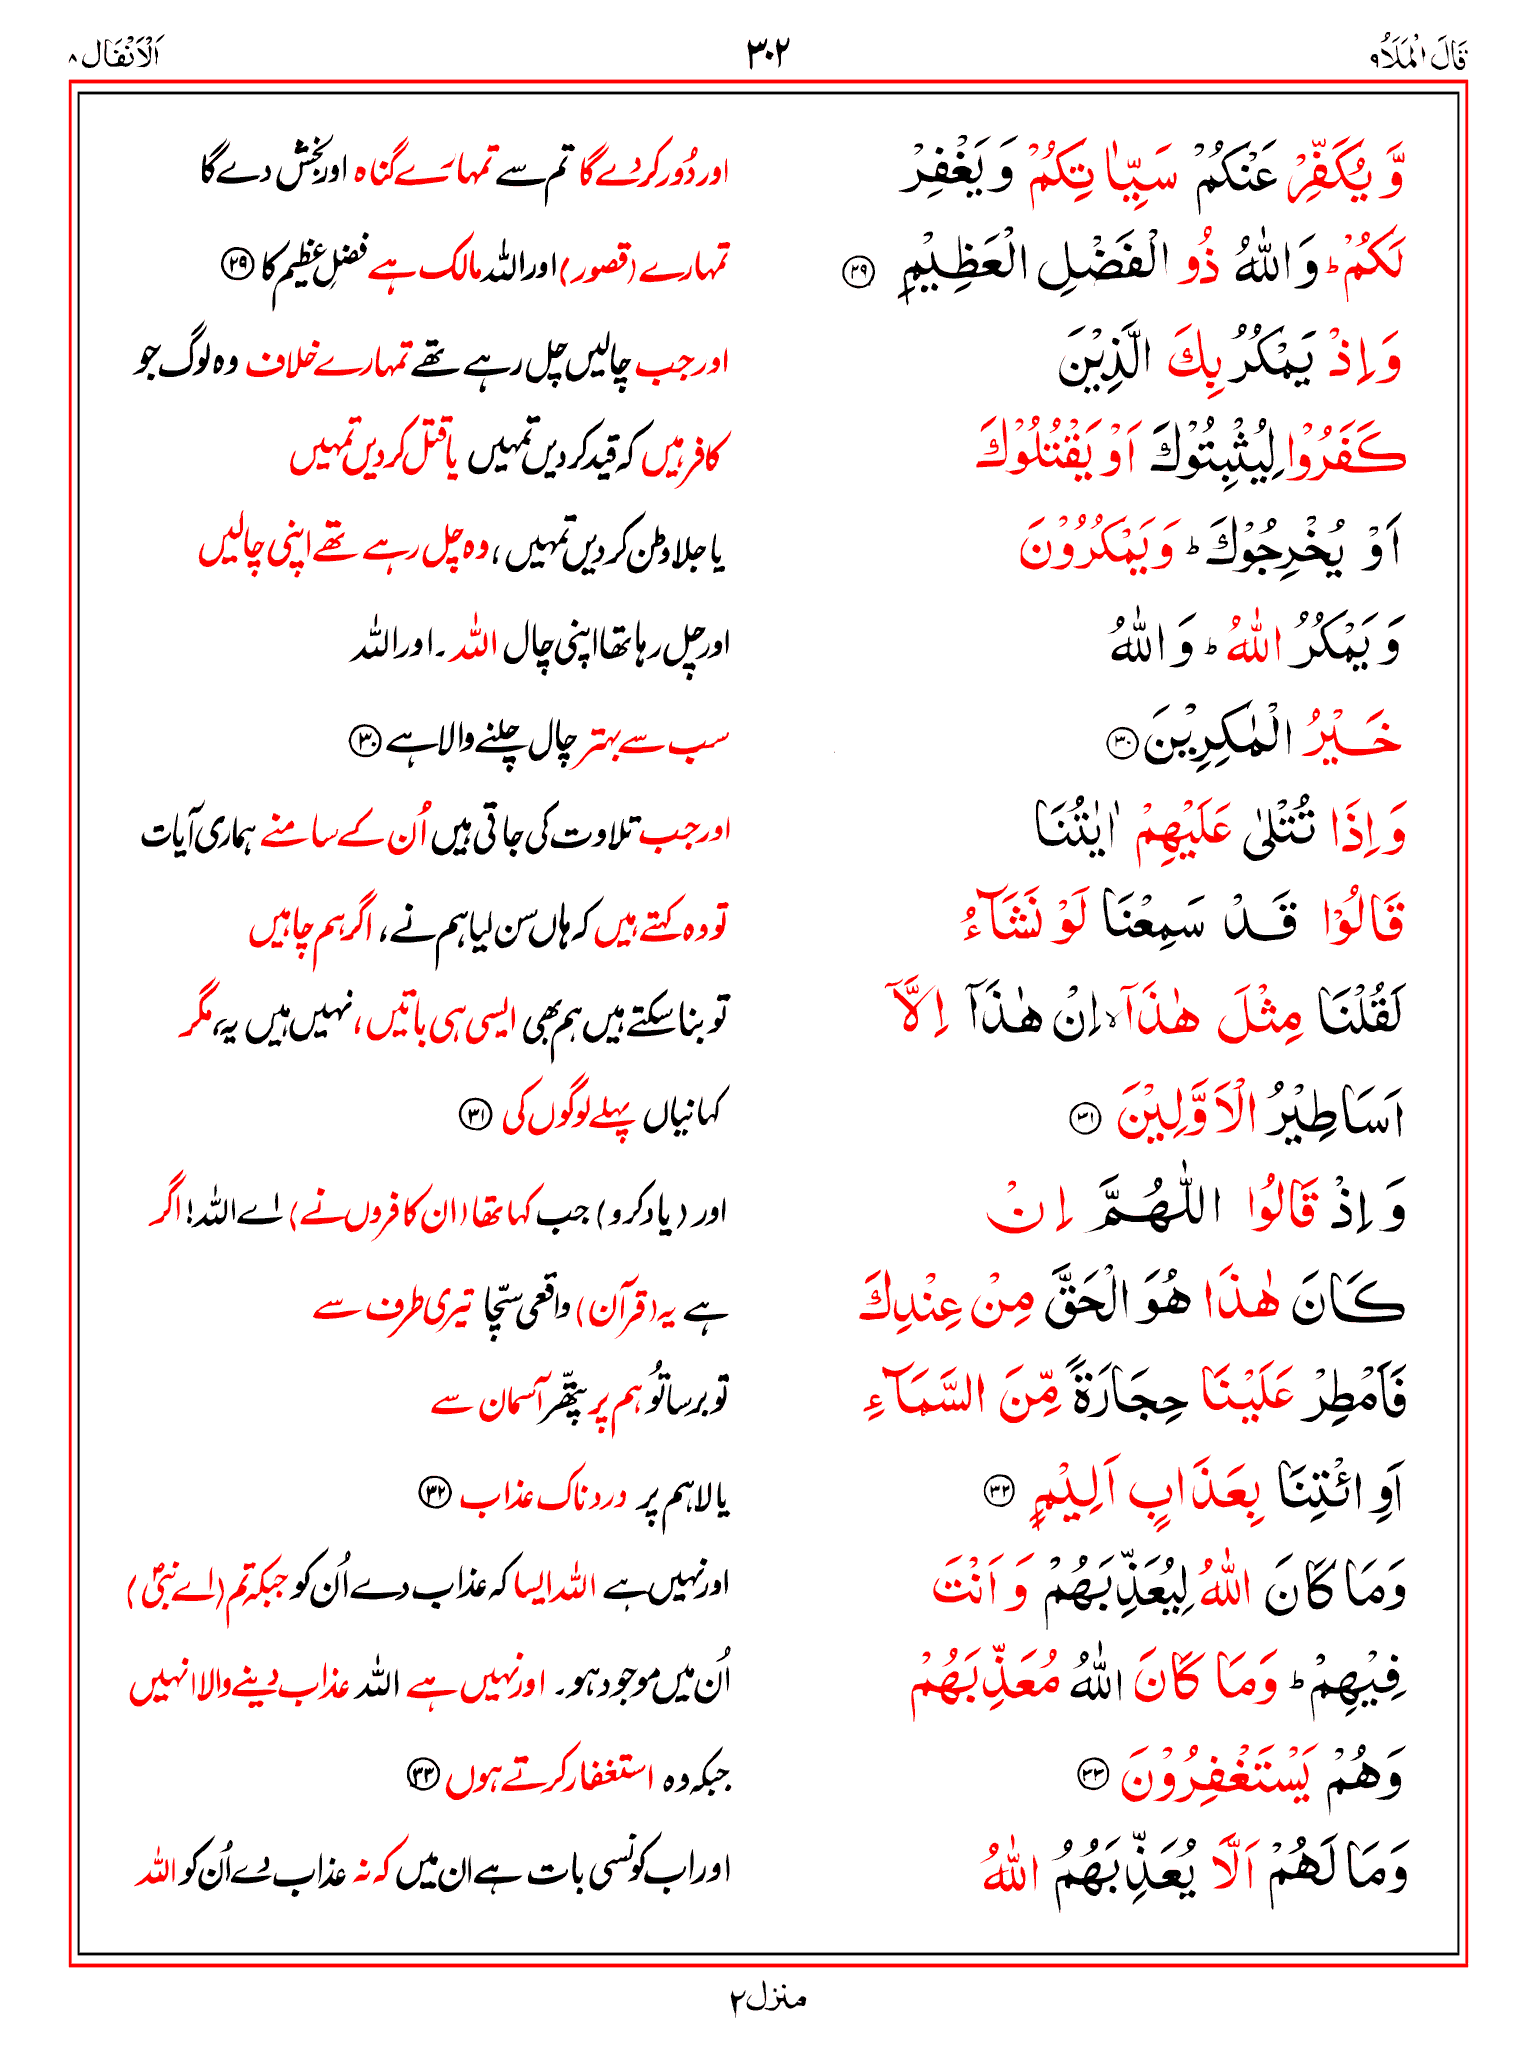 قَالَ الْمَلَاُ ۹ ۳۰۲ اَلْاَنْفَال ۸
وَّ يُكَفِّرْ عَنْكُمْ سَيِّاٰتِكُمْ وَ يَغْفِرْ اور دُور کر دے گا تم سے تمہارے گناہ اور بخش دے گا
لَكُمْ ؕ وَ اللّٰهُ ذُو الْفَضْلِ الْعَظِيْمِ ۲۹ تمہارے (قصور) اور اللہ مالک ہے فضلِ عظیم کا ۲۹
وَ اِذْ يَمْكُرُ بِكَ الَّذِيْنَ اور جب چالیں چل رہے تھے تمہارے خلاف وہ لوگ جو
كَفَرُوْا لِيُثْبِتُوْكَ اَوْ يَقْتُلُوْكَ کافر ہیں کہ قید کر دیں تمہیں یا قتل کر دیں تمہیں
اَوْ يُخْرِجُوْكَ ؕ وَ يَمْكُرُوْنَ یا جلا وطن کر دیں تمہیں، وہ چل رہے تھے اپنی چالیں
وَ يَمْكُرُ اللّٰهُ ؕ وَ اللّٰهُ اور چل رہا تھا اپنی چال اللہ ۔ اور اللہ
خَيْرُ الْمٰكِرِيْنَ ۳۰ سب سے بہتر چال چلنے والا ہے ۳۰
وَ اِذَا تُتْلٰى عَلَيْهِمْ اٰيٰتُنَا اور جب تلاوت کی جاتی ہیں اُن کے سامنے ہماری آیات
قَالُوْا قَدْ سَمِعْنَا لَوْ نَشَآءُ تو وہ کہتے ہیں کہ ہاں سن لیا ہم نے، اگر ہم چاہیں
لَقُلْنَا مِثْلَ هٰذَاۤ ۙ اِنْ هٰذَاۤ اِلَّاۤ تو بنا سکتے ہیں ہم بھی ایسی ہی باتیں، نہیں ہیں یہ، مگر
اَسَاطِيْرُ الْاَوَّلِيْنَ ۳۱ کہانیاں پہلے لوگوں کی ۳۱
وَ اِذْ قَالُوا اللّٰهُمَّ اِنْ اور (یاد کرو) جب کہا تھا (ان کافروں نے) اے اللہ! اگر
كَانَ هٰذَا هُوَ الْحَقَّ مِنْ عِنْدِكَ ہے یہ (قرآن) واقعی سچّا تیری طرف سے
فَاَمْطِرْ عَلَيْنَا حِجَارَةً مِّنَ السَّمَآءِ تو برسا تُو ہم پر پتھّر آسمان سے
اَوِ ائْتِنَا بِعَذَابٍ اَلِيْمٍ ۳۲ یا لا ہم پر دردناک عذاب ۳۲
وَ مَا كَانَ اللّٰهُ لِيُعَذِّبَهُمْ وَ اَنْتَ اور نہیں ہے اللہ ایسا کہ عذاب دے اُن کو جبکہ تم (اے نبیؐ)
فِيْهِمْ ؕ وَ مَا كَانَ اللّٰهُ مُعَذِّبَهُمْ اُن میں موجود ہو۔ اور نہیں ہے اللہ عذاب دینے والا انہیں
وَ هُمْ يَسْتَغْفِرُوْنَ ۳۳ جبکہ وہ استغفار کرتے ہوں ۳۳
وَ مَا لَهُمْ اَلَّا يُعَذِّبَهُمُ اللّٰهُ اور اب کونسی بات ہے ان میں کہ نہ عذاب دے اُن کو اللہ
منزل ۲